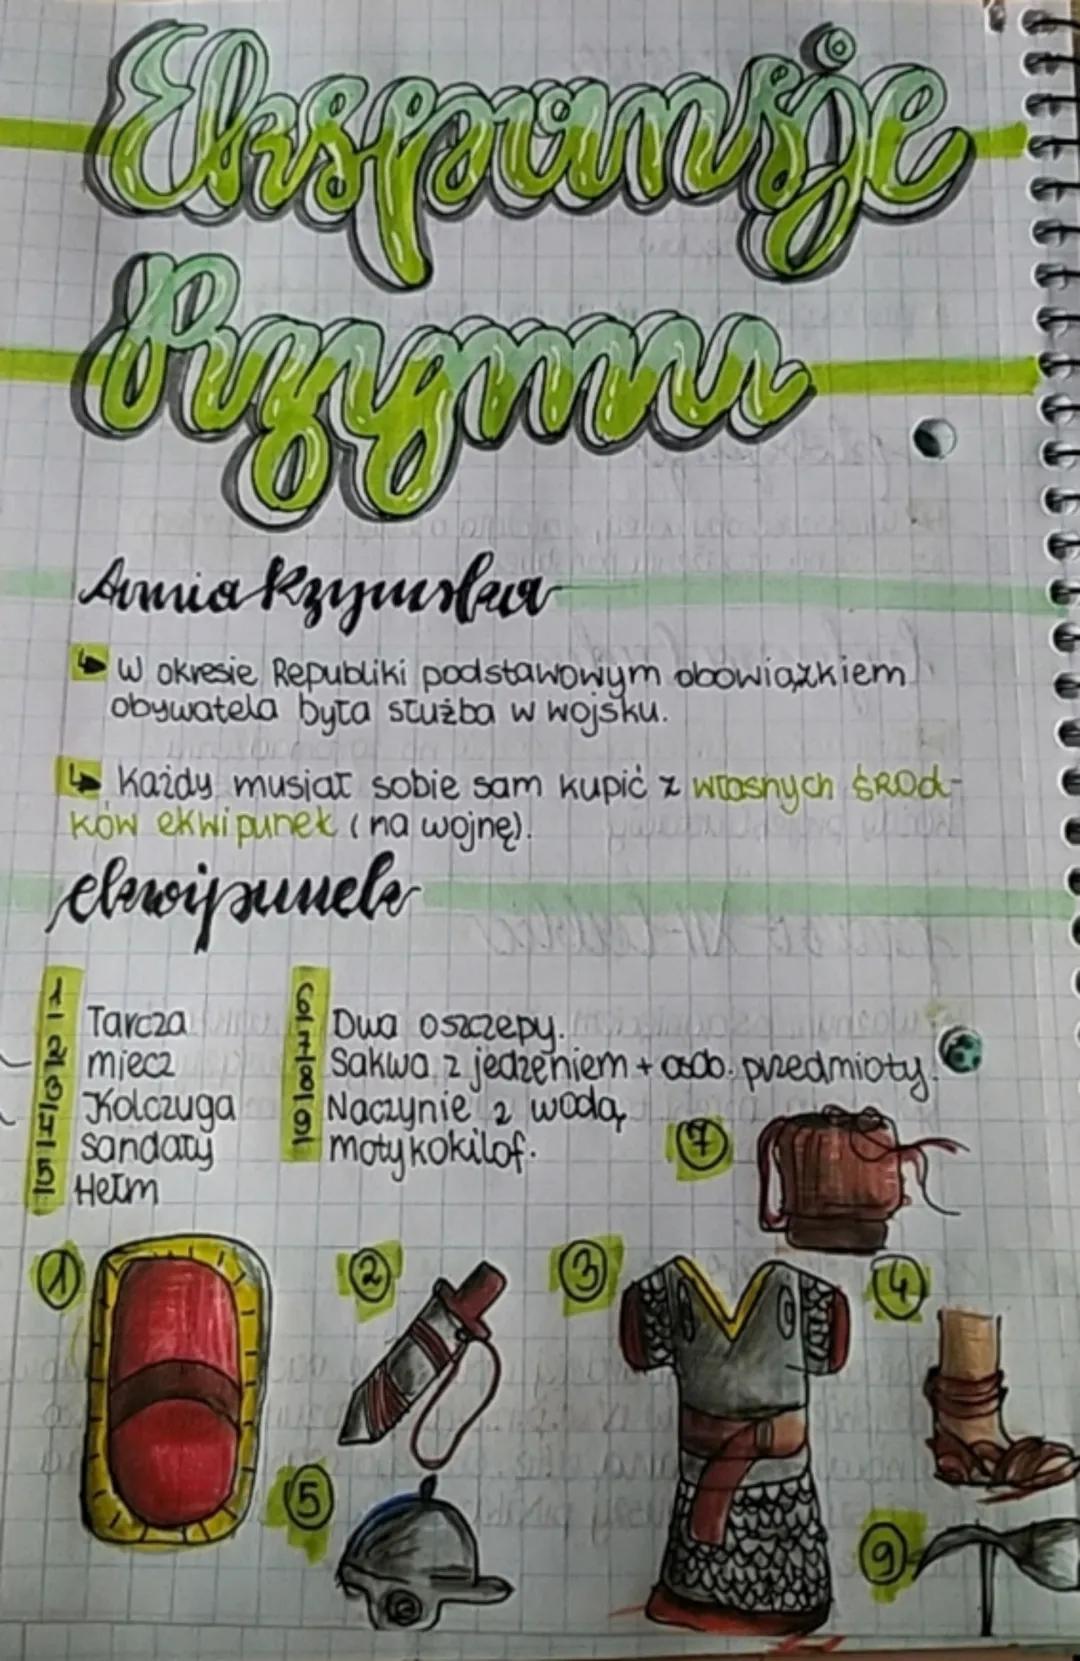 Ekspansje
Rzymu
Armia Rzymska
↳ W okresie Republiki podstawowym obowiązkiem
obywatela była służba w wojsku.
↳ Każdy musiał sobie sam kupić z własnych środ-
ków ekwipunek (na wojnę).
ekwipunek
1 Tarcza
2 miecz
3 Kolczuga
4 sandały
5 Hełm
6 Dwa oszczepy.
7 Sakwa z jedzeniem + osob. przedmioty.
8 Naczynie z wodą
9 motykokilof.
7
1
2
3
4
5
9